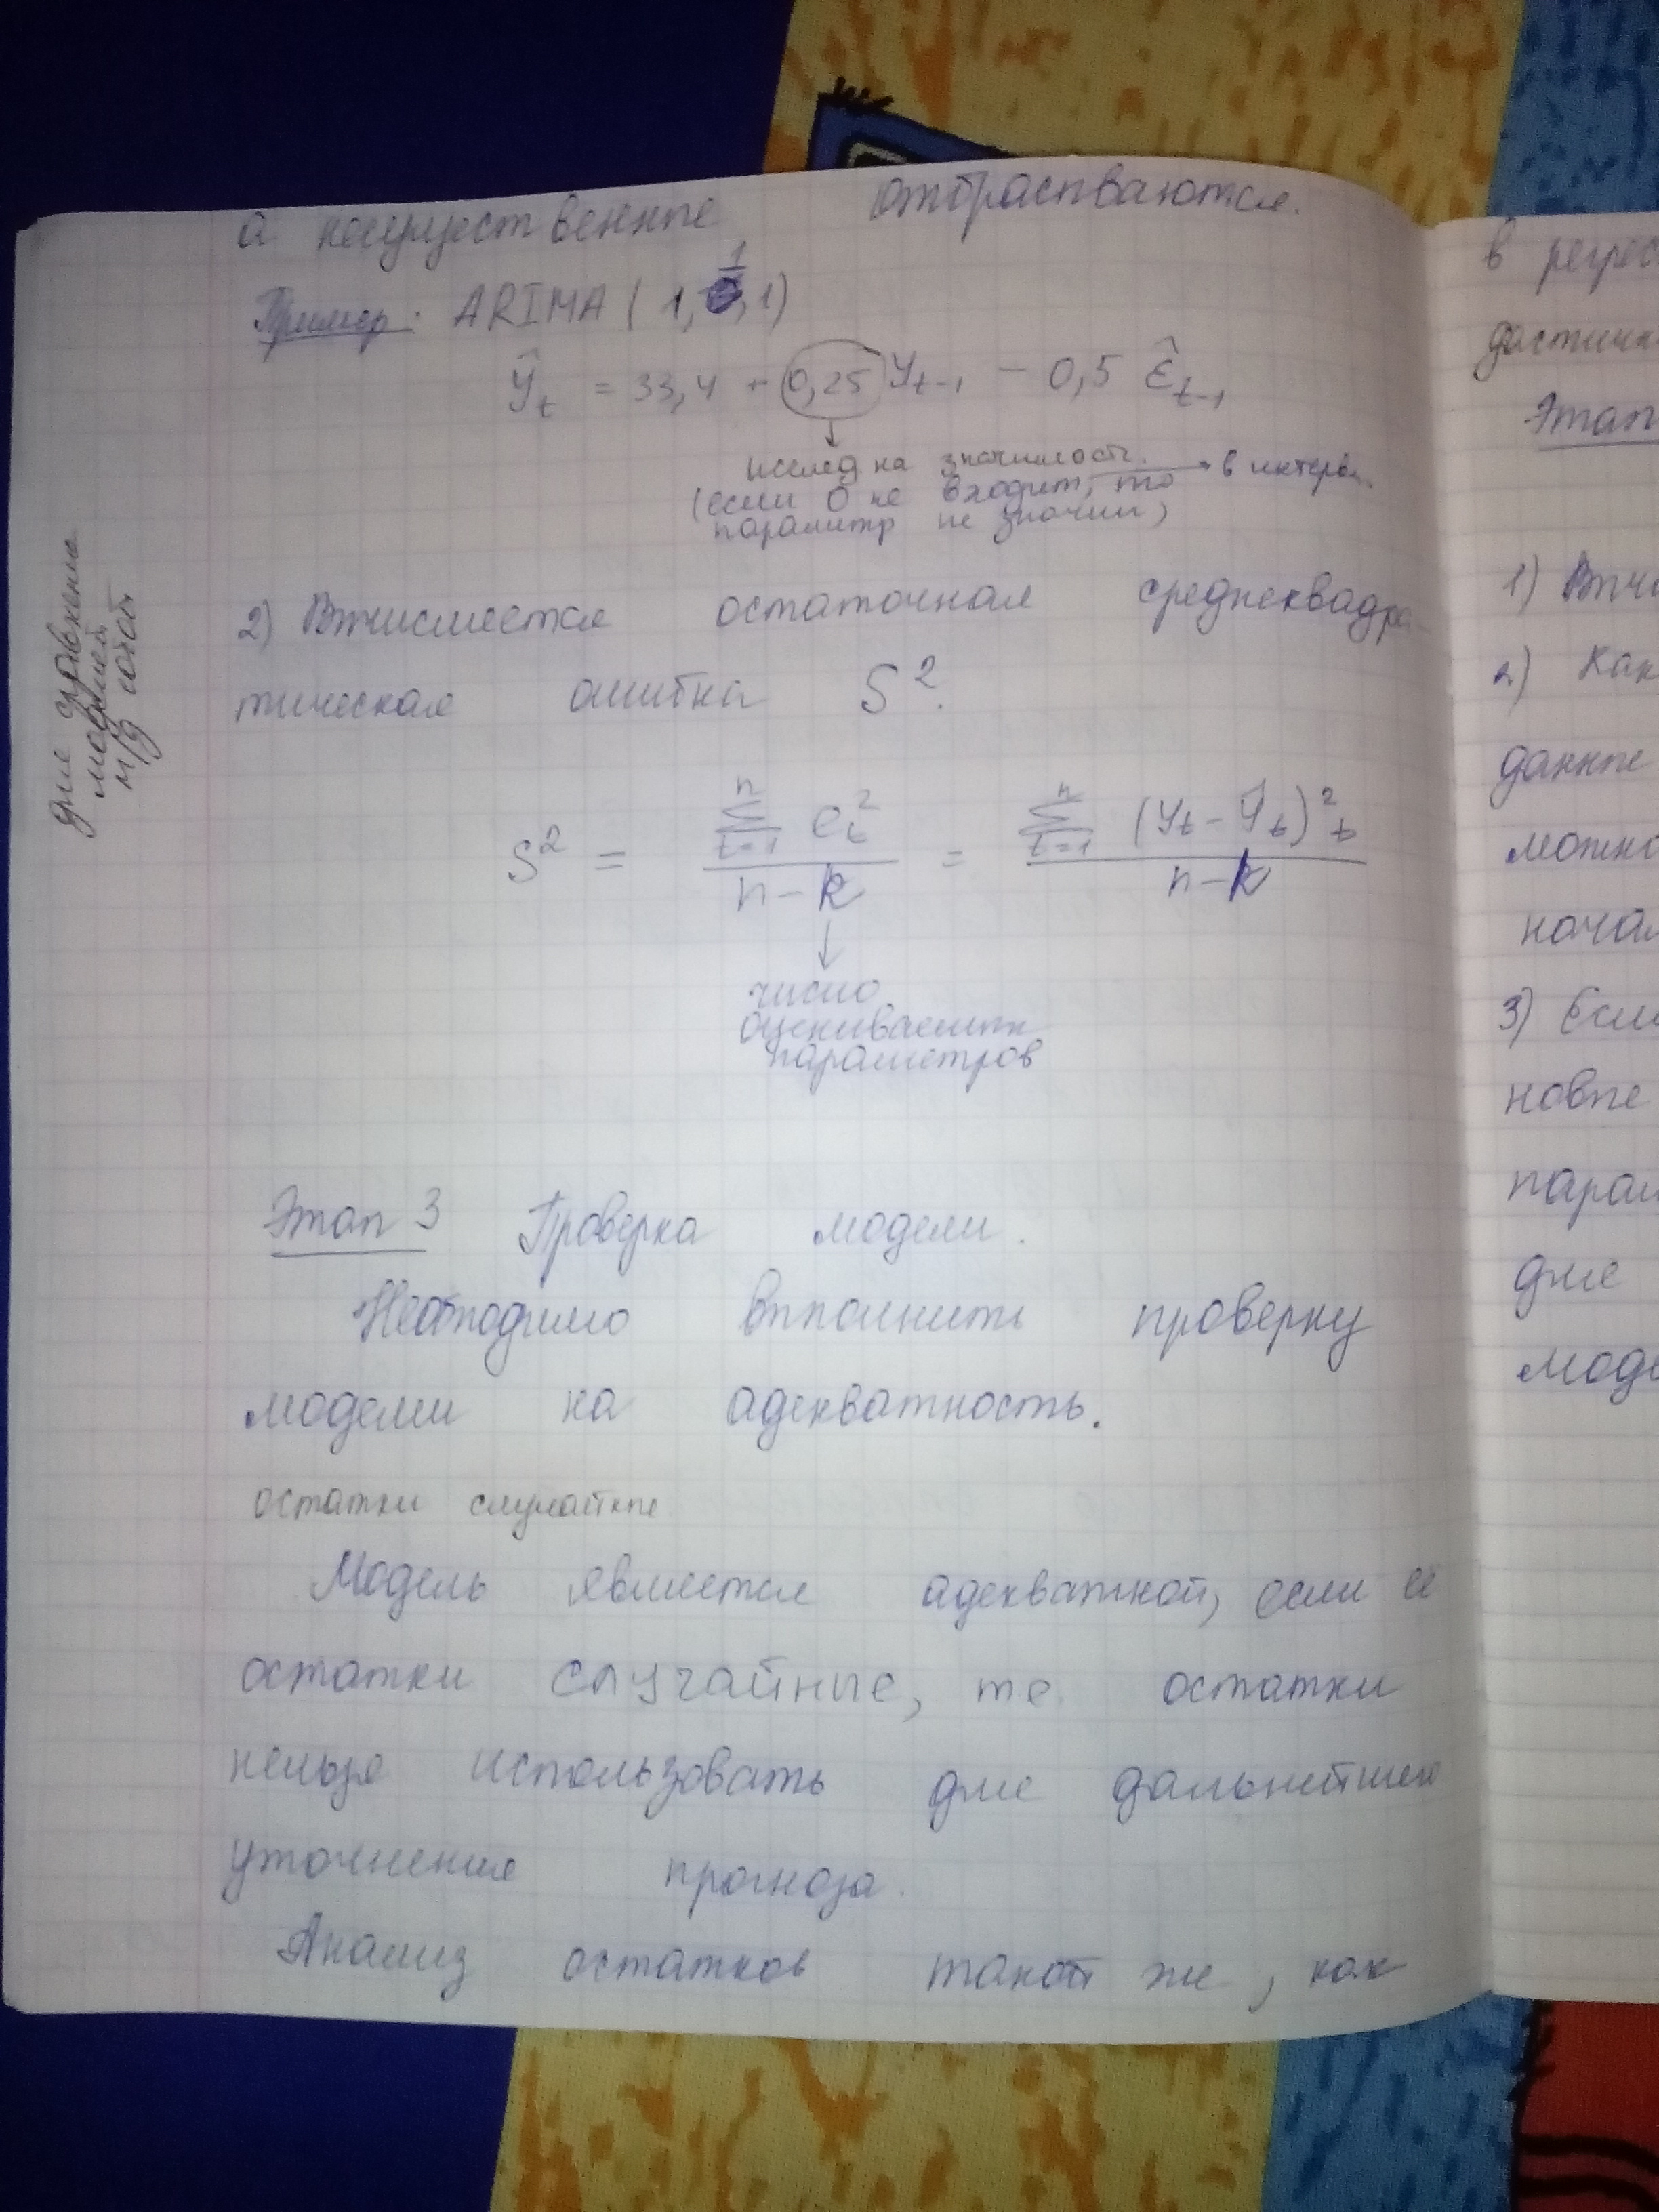 а несущественные отбрасываются.
Пример: ARIMA (1, 1, 1)
ŷₜ = 33,4 + 0,25 yₜ₋₁ − 0,5 ε̂ₜ₋₁
исслед на значимость.
(если 0 не входит, то → в интервал
параметр не значим)
2) Вычисляется остаточная среднеквадра-
тическая ошибка S².
для сравнения
моделей
м/д собой
S² = ∑ₜ₌₁ⁿ eₜ² / (n−k) = ∑ₜ₌₁ⁿ (yₜ − ŷₜ)²ₜ / (n−k)
число
оцениваемых
параметров
Этап 3 Проверка модели.
Необходимо выполнить проверку
модели на адекватность.
остатки случайные
Модель является адекватной, если её
остатки случайные, т.е. остатки
нельзя использовать для дальнейшего
уточнения прогноза.
Анализ остатков такой же, как
в регрес
достиж
Этап
1)
2) Как
данные
можно
начал
3) Если
новые
парам
для
моде